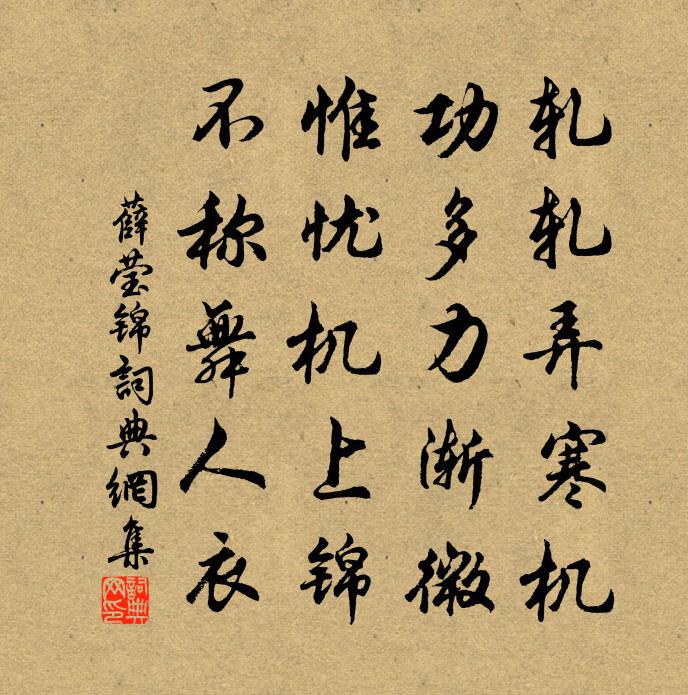 轧轧弄寒机
功多力渐微
惟忧机上锦
不称舞人衣
薛莹锦詞典網集
詞典网印